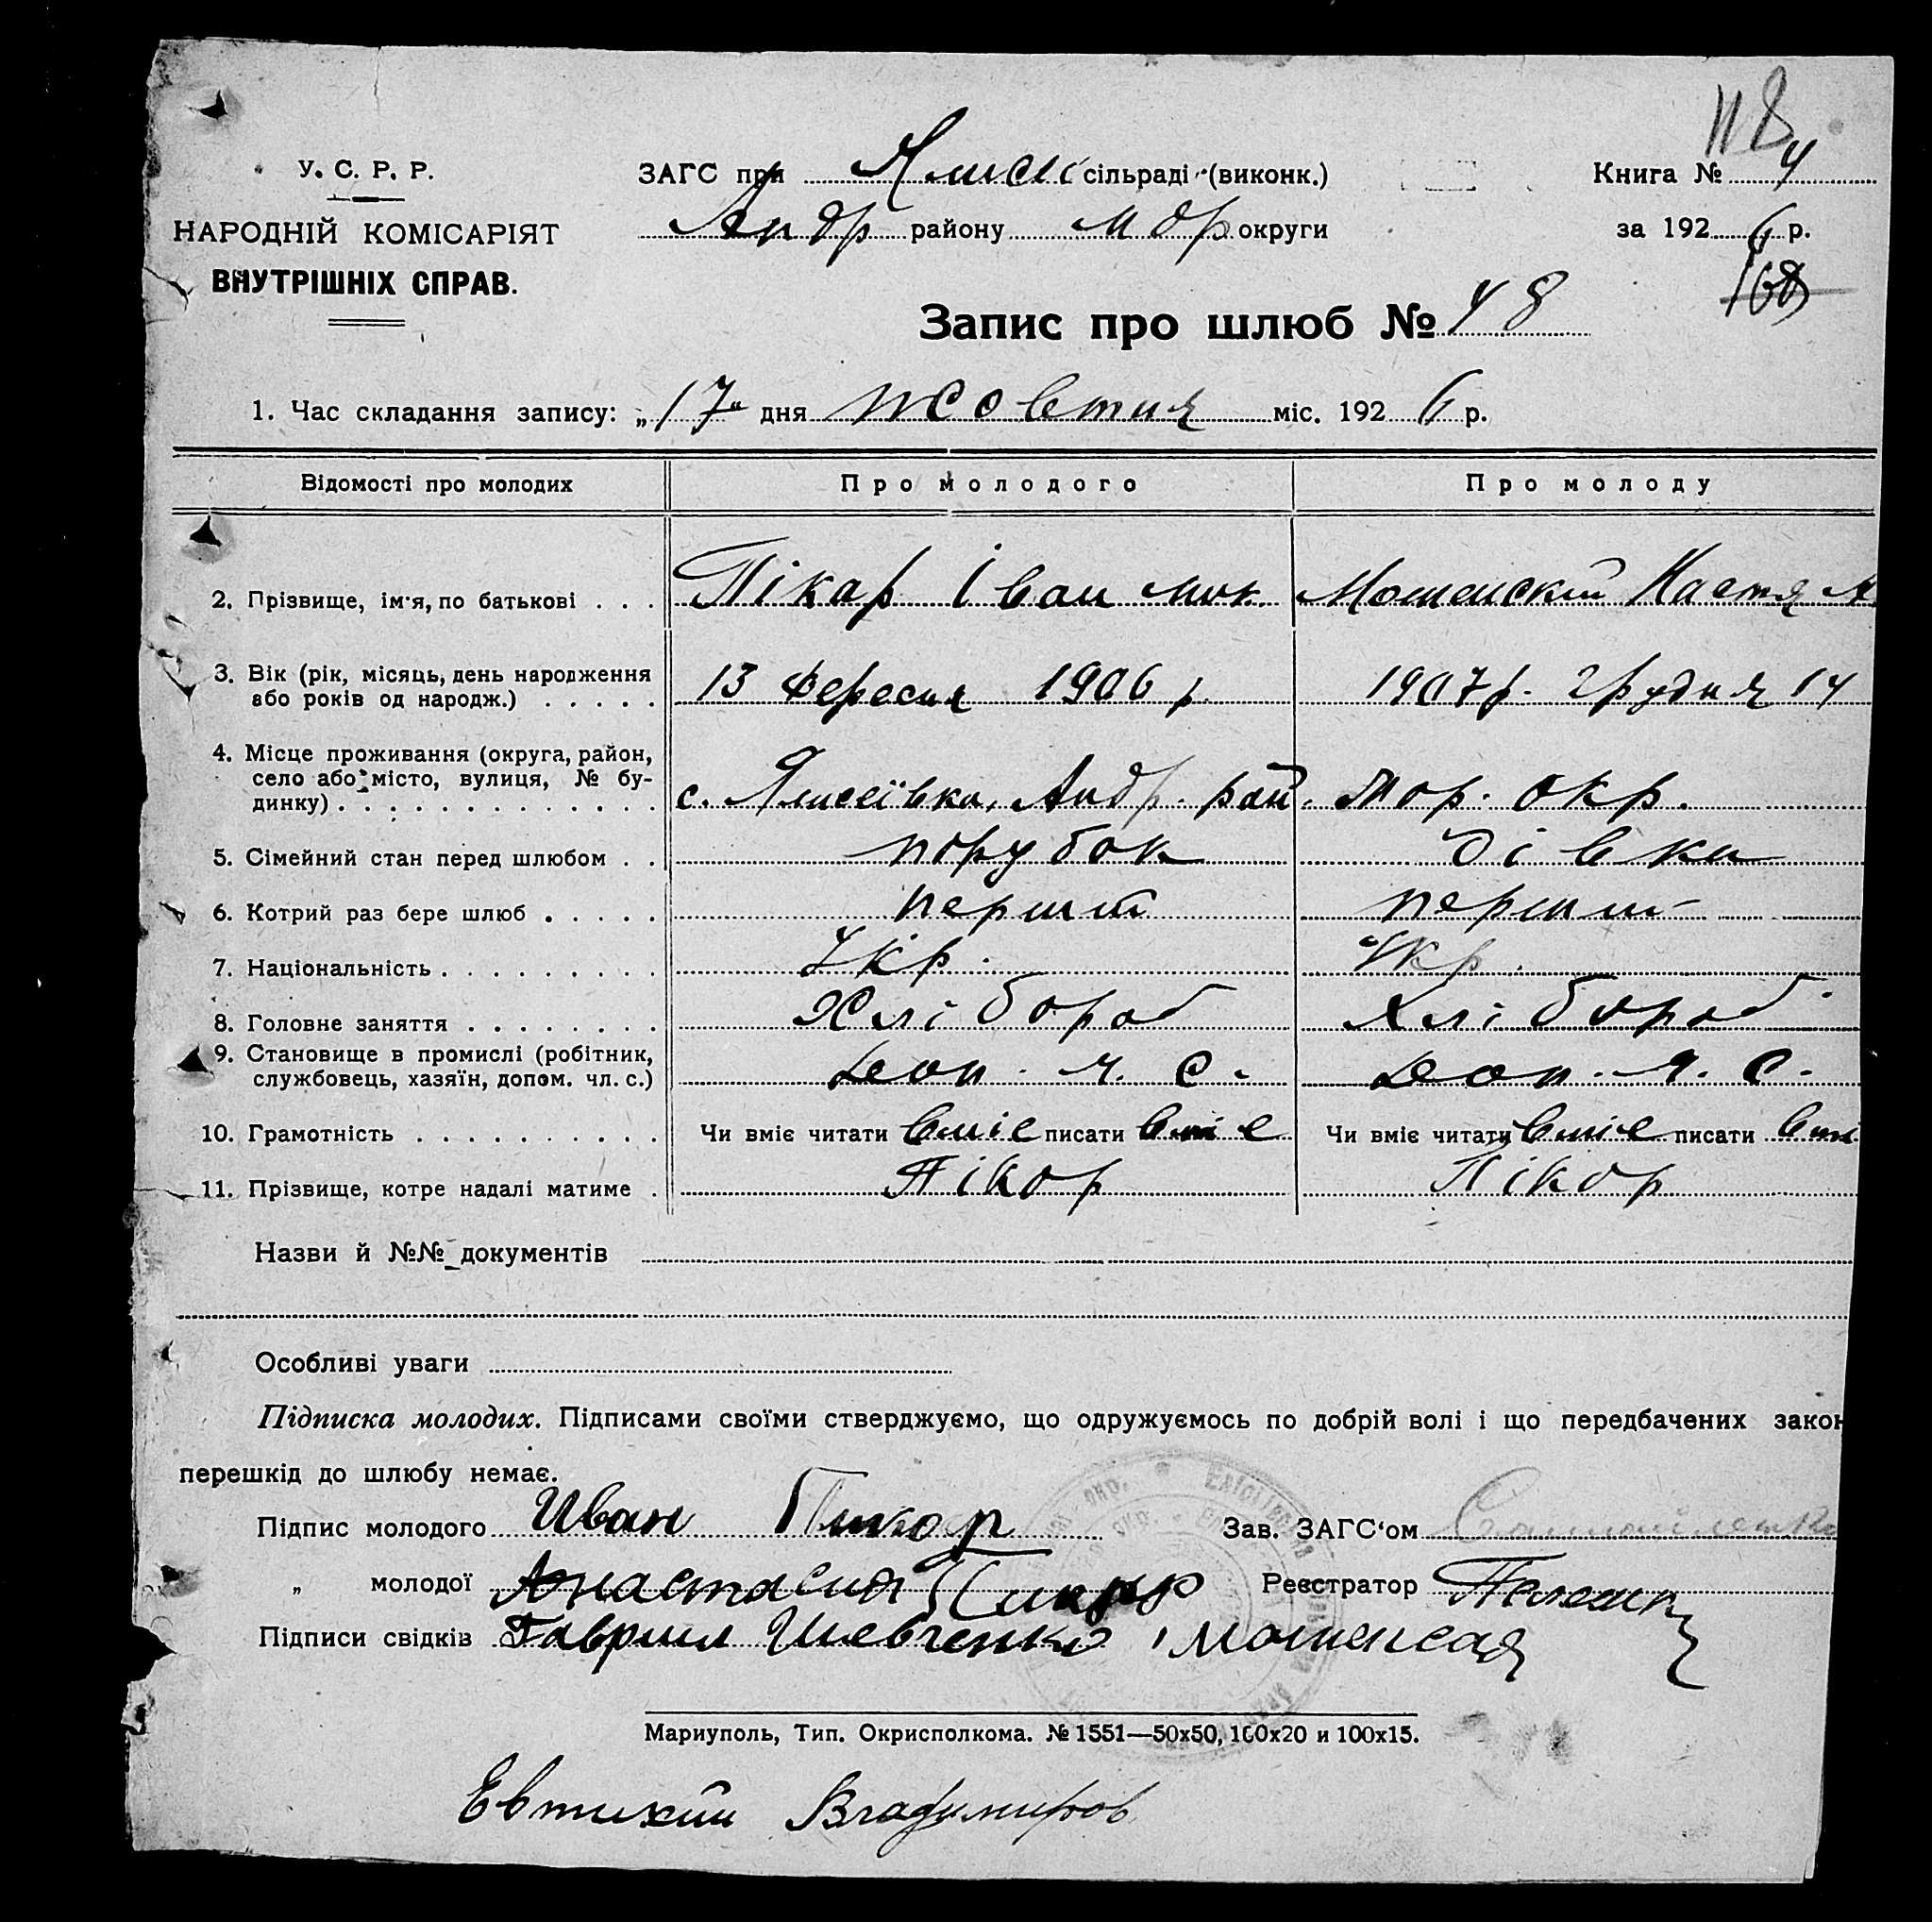 118
У. С. Р. Р. ЗАГС при сільраді (виконк.) Книга № 4
НАРОДНІЙ КОМІСАРІЯТ Андр району округи за 1926 р.
ВНУТРІШНІХ СПРАВ. 168
Запис про шлюб № 48
1. Час складання запису: „17“ дня жовтня міс. 1926 р.
Відомості про молодих Про молодого Про молоду
2. Прізвище, ім'я, по батькові . . . Пікар Іван Мик Мошенский Настя М
3. Вік (рік, місяць, день народження
або років од народж.) . . . . . 13 вересня 1906 р. 1907 р. грудня 14
4. Місце проживання (округа, район,
село або місто, вулиця, № бу-
динку) . . . . . . . . . . . . . с. Ялисеївка, Андр. рай. Мар. окр.
5. Сімейний стан перед шлюбом . . порубок дівка
6. Котрий раз бере шлюб . . . . . перший перший
7. Національність . . . . . . . . . Укр. Укр.
8. Головне заняття . . . . . . . . Хлібороб Хлібороб
9. Становище в промислі (робітник,
службовець, хазяїн, допом. чл. с.) доп. ч. с. доп. ч. с.
10. Грамотність . . . . . . . . . . Чи вміє читати вміє писати вміє Чи вміє читати вміє писати вмі
11. Прізвище, котре надалі матиме . Пікар Пікар
Назви й №№ документів
Особливі уваги
Підписка молодих. Підписами своїми стверджуємо, що одружуємось по добрій волі і що передбачених закон
перешкід до шлюбу немає.
Підпис молодого Иван Пикар Зав. ЗАГС'ом
„ молодої Анастасия Пикар Реєстратор
Підписи свідків Гаврил Шевченко Мошенская
Мариуполь, Тип. Окрисполкома. № 1551—50х50, 100х20 и 100х15.
Евтихий Владимиров